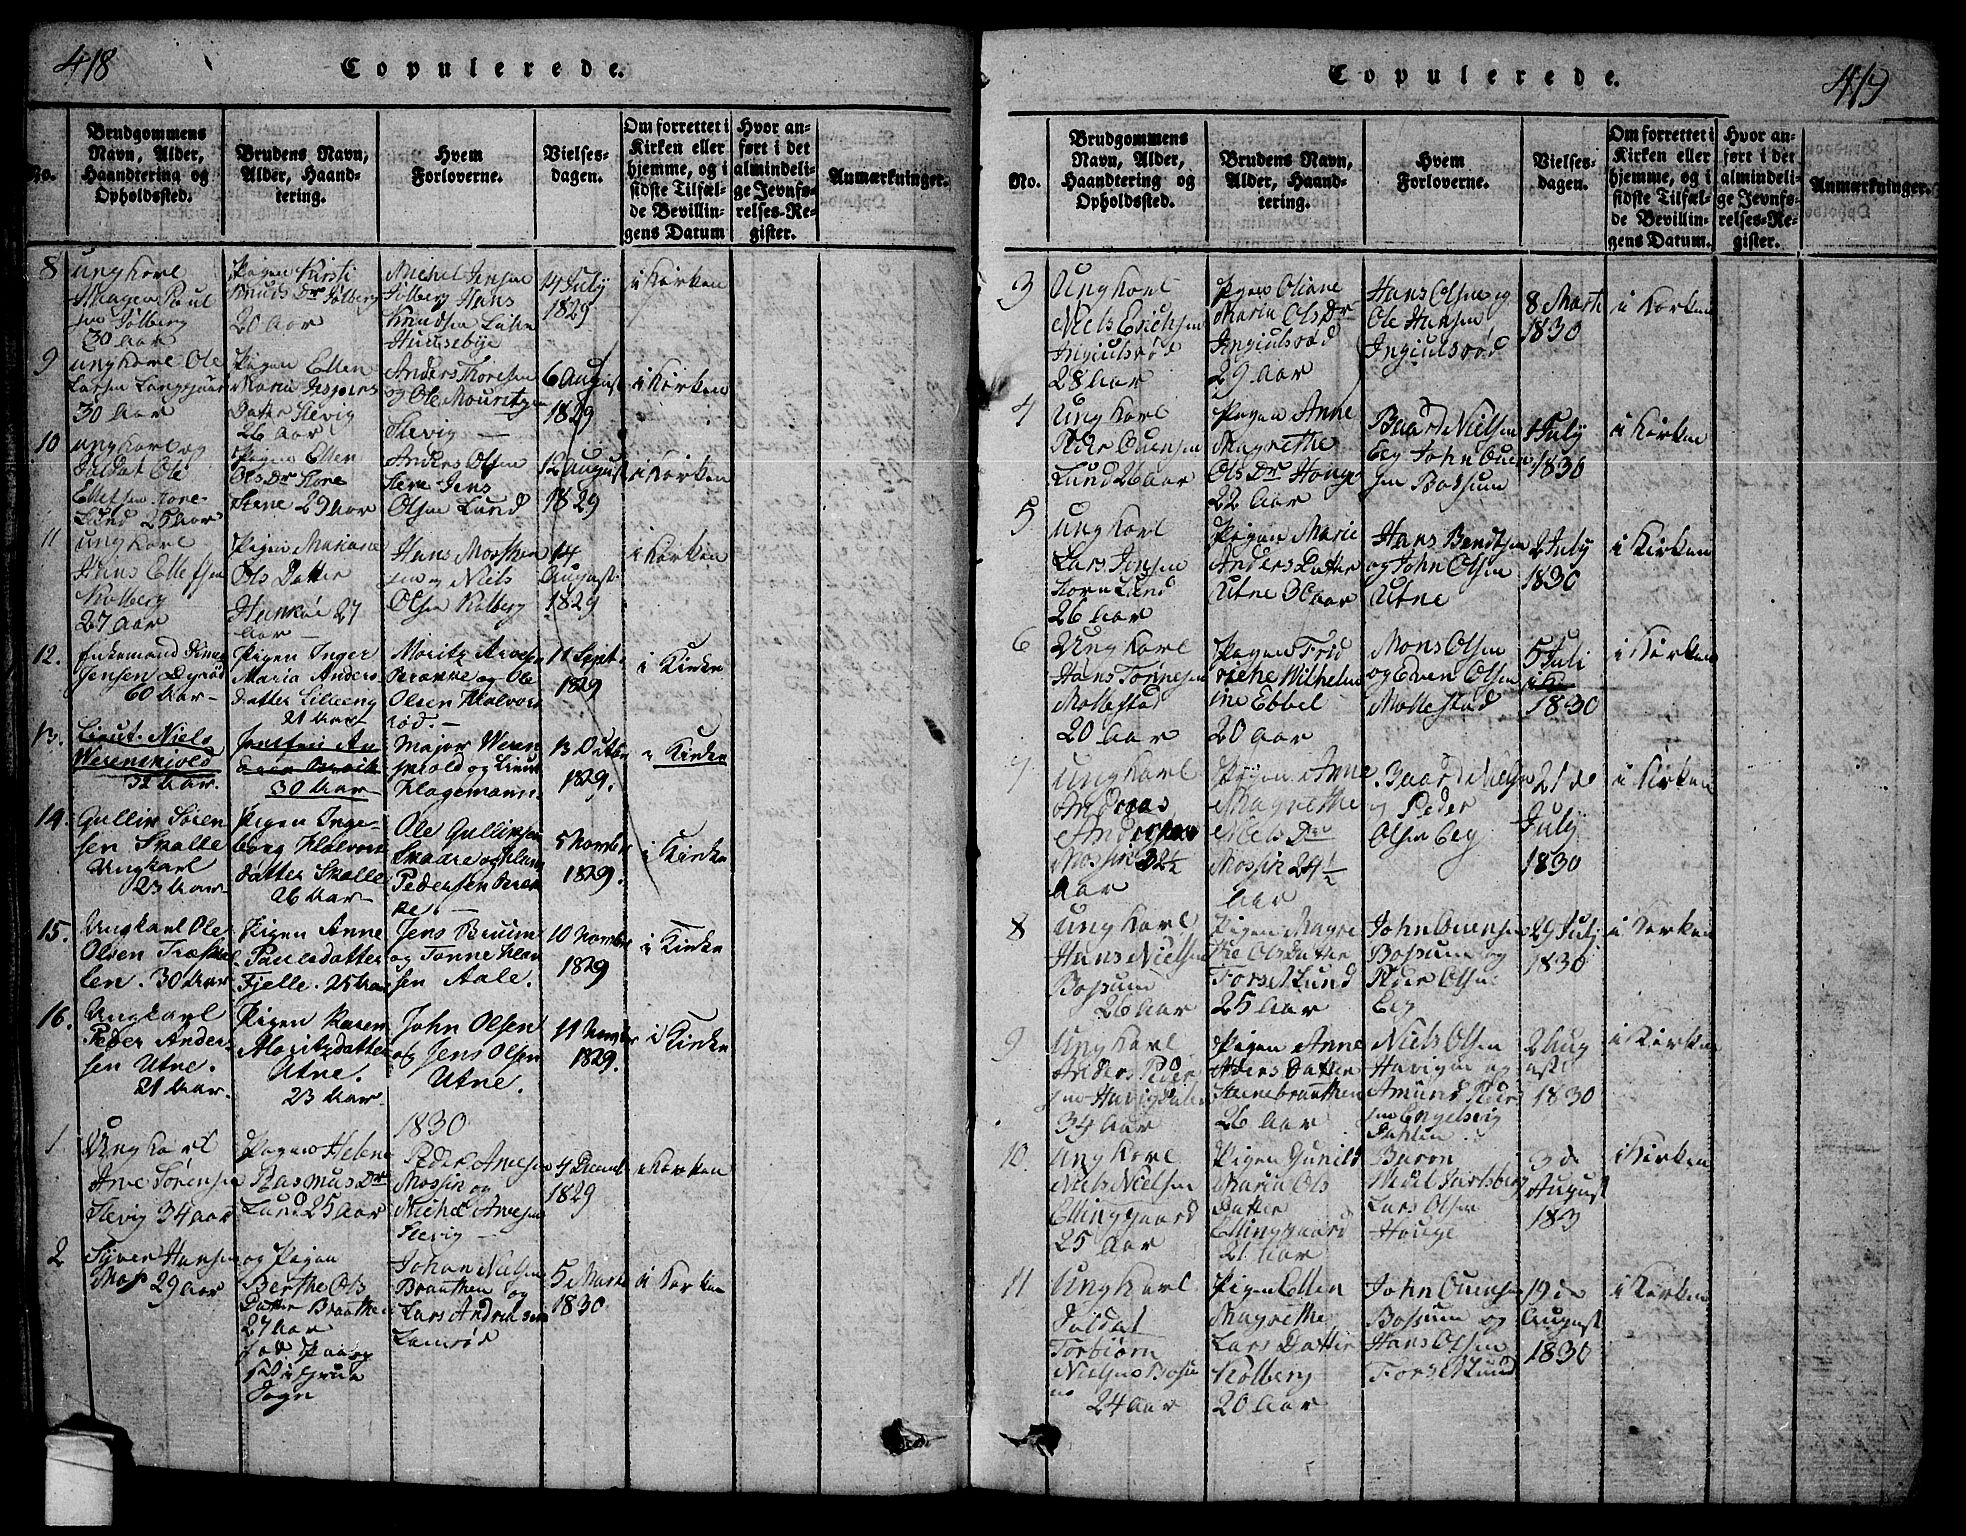 418
Copulerede.
No.
Brudgommens
Navn, Alder,
Haandtering og
Opholdssted.
Brudens Navn,
Alder, Haand-
tering.
Hvem
Forloverne.
Vielses-
dagen.
Om forrettet i
Kirken eller
hjemme, og i
sidste Tilfæl-
de Bevillin-
gens Datum
Hvor an-
ført i det
almindeli-
ge Jevnfø-
relses-Re-
gister.
Anmærkninger.
8
ungKarl
Poul
sen Kolberg
30 aar
Pigen Kirsti
Knuds Dr Kolberg
20 Aar
Michel Jensen
Kolberg Hans
Knudsen
Huusebye
14 July
1829
i Kirken
9
ungKarl Ole
Larsen Langgaard
30 Aar
Pigen Ellen
Maria Jespers
Datter Slevig
26 Aar
Anders Thoresen
og Ole Mouritzen
Slevig
6 August
1829
i Kirken
10
ungKarl og
Soldat Ole
Ellefsen Kore-
Lund 25 Aar
Pigen Ellen
Ols Dr
Stene 29 Aar
Anders Olsen
Jens
Olsen Lund
12 August
1829
i Kirken
11
ungKarl
Hans Ellefsen
Kolberg
27 Aar
Pigen Mariane
Ols Datter
27
Aar
Hans
og Niels
Olsen Kolberg
14
August
1829
i Kirken
12.
Enkemand
Jensen Dyrød
60 Aar
Pigen Inger
Maria Anders
datter Lilleeng
21 Aar
Moritz
og Ole
Olsen Halvors
rød.
11 Sept.
1829
i Kirke
13.
Lieut. Niels
Werenskiold
32 Aar.
30 Aar
Major Weren
skiold og Lieut
Hagemann.
13 Octbr
1829.
i Kirke
14.
Gullik Søren
sen Skolle
Ungkarl
23 Aar
Pigen Inge-
borg Halvors
datter Skolle
26 Aar
Ole Gulliksen
Skaare og
Pedersen
5 Novmber
1829.
i Kirke
15.
Ungkarl Ole
Olsen Træskel
len. 30 Aar
Pigen Anne
Paulsdatter
Fjelle. 25 Aar
Jens Bruum
og Tønne Han
sen Aale.
10 Novmbr
1829
i Kirke
16.
Ungkarl
Peder Ander-
sen Utne.
21 Aar
Pigen Karen
Moritzdatter
Utne.
23 Aar
John Olsen
og Jens Olsen
Utne.
11 Novmbr
1829.
i Kirke
1830
1
UngKarl
Arne Sørensen
Slevig 34 aar
Pigen Helene
Rasmus Dr
Lund 25 Aar
Peder Arnesen
Mossin og
Michel Arnesen
Slevig
4 Decemb
1829
i Kirken
2
Syver Hansen
Moss 29 aar
og Pigen
Berthe Ols
Datter Braathen
27 Aar
Sogn
Johan Nielsen
Braathen og
Lars Andreasen
Lamrød
5 Marts
1830
i Kirken
419
Copulerede.
No.
Brudgommens
Navn, Alder,
Haandtering og
Opholdssted.
Brudens Navn,
Alder, Haand-
tering.
Hvem
Forloverne.
Vielses-
dagen.
Om forrettet i
Kirken eller
hjemme, og i
sidste Tilfæl-
de Bevillin-
gens Datum.
Hvor an-
ført i det
almindeli-
ge Jevnfø-
relses-Re-
gister.
Anmærkninger.
3
UngKarl
Niels Erichsen
Ingiulsrød
28 Aar
Pigen Oliane
Maria Ols Dr
Ingiulsrød
29 Aar
Hans Olsen og
Ole Hansen
Ingiulsrød
8 Marts
1830
i Kirken
4
UngKarl
Peder Ouensen
Lund 26 Aar
Pigen Anne
Magrethe
Ols Dr Houge
22 Aar
Baard Nielsen
Eeg John Ouen
sen Bossum
1 July
1830
i Kirken
5
ungKarl
Lars Jensen
KornLund
26 Aar
Pigen Marie
Anders Datter
Utne 30 aar
Hans Bendtsen
og John Olsen
Utne
2 July
1830
i Kirken
6
UngKarl
Hans Tønnesen
Mollestad
20 Aar
Pigen Frid
riche Wilhelm
ine Ebbel
20 Aar
Mons Olsen
og Even Olsen
Mollestad
5 Juli
1830
i Kirken
7
UngKarl
Andreas
Andersen
Mossin 32½
Aar
Pigen Anne
Magrethe
Niels Dr
Mossin 29½
Aar
Baard Nielsen
og Peder
Olsen Eeg
21 de
July
1830
i Kirken
8
UngKarl
Hans Nielsen
Bossum
26 Aar
Pigen Magre
the Ols Datter
Forsetlund
25 Aar
John Ouensen
Bossum og
Peder Olsen
Eeg
29 July
1830
i Kirken
9
UngKarl
Anders Peder
sen
34 Aar
Pigen Anne
Aders Datter
Stenebraathen
26 Aar
Niels Olsen
og
Amund Peder
sen Engelsvig
Dahlen
2 Aug
ust
1830
i Kirken
10
UngKarl
Niels Nielsen
Ellinggaard
25 Aar
Pigen Gunild
Maria Ols
Datter
Ellinggaard
21 Aar
Baron
Lars Olsen
Houge
3 de
August
183
i Kirken
11
UngKarl
Soldat
Torbiørn
Nielsen Bossu
m
24 Aar
Pigen Ellen
Magrethe
Lars Datter
Kolberg
20 Aar
John Ouensen
Bossum og
Hans Olsen
Forsetlund
19 de
August
1830
i Kirken